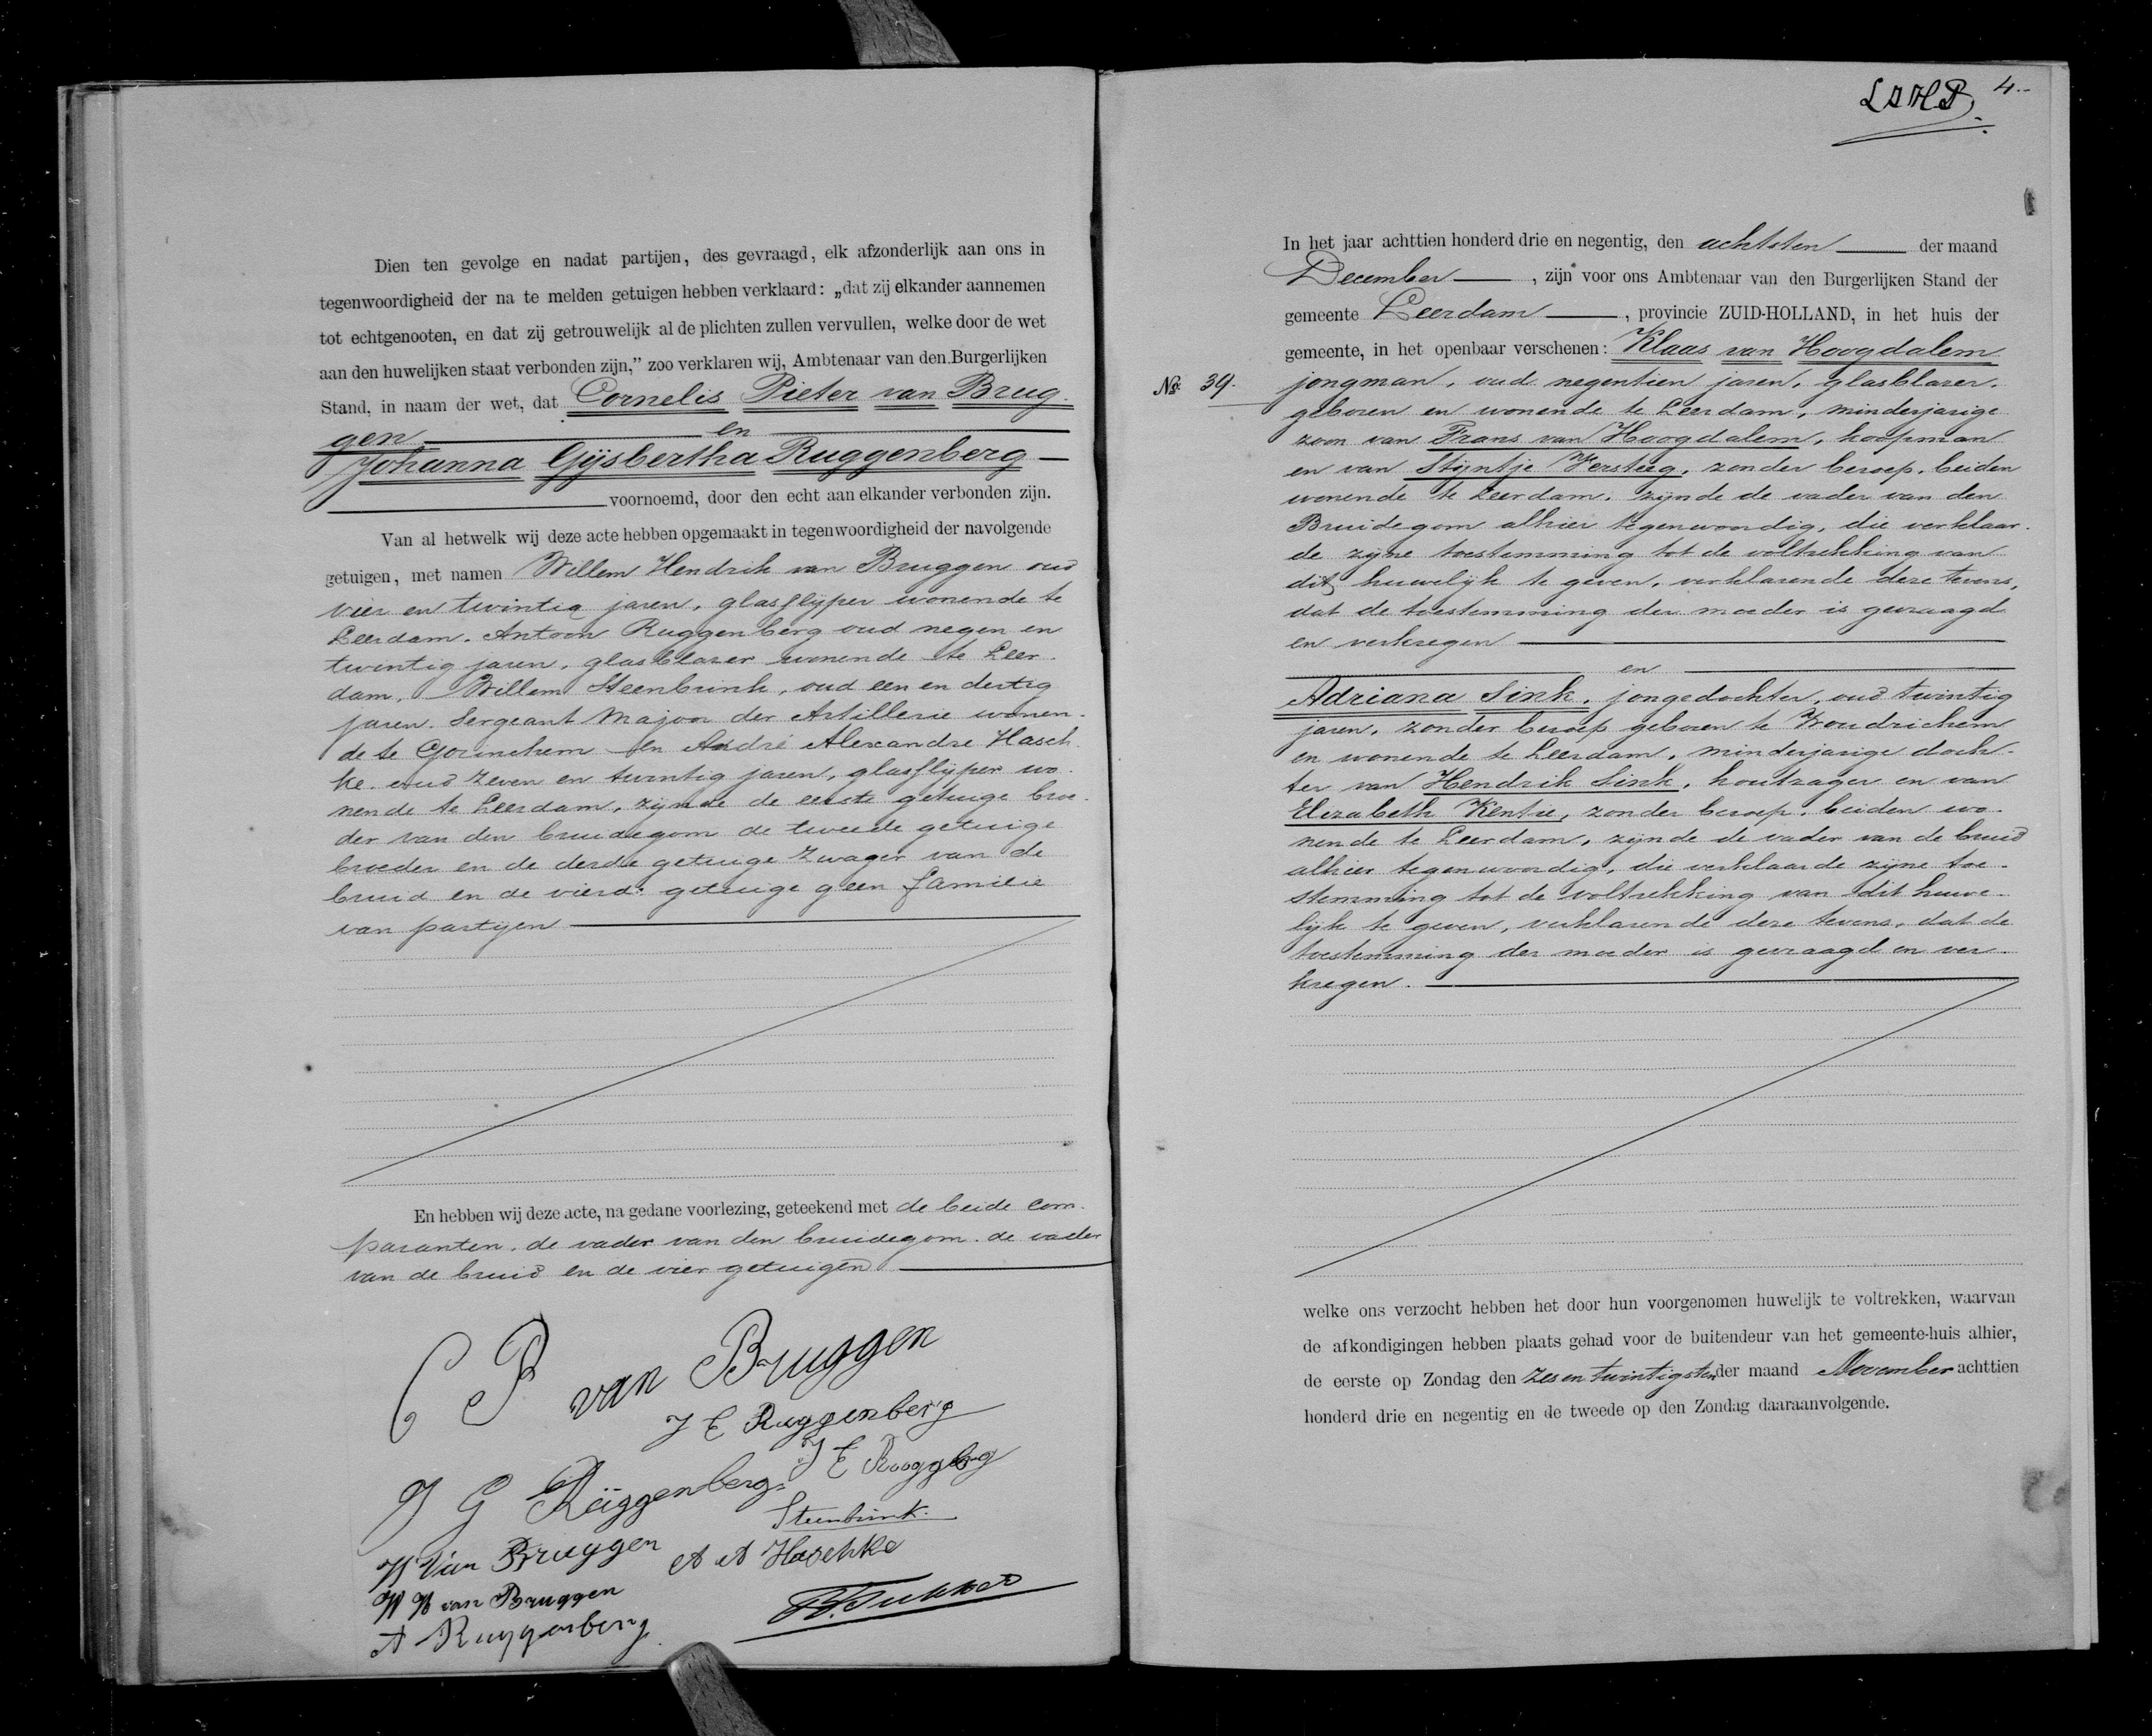 Dien ten gevolge en nadat partijen, des gevraagd, elk afzonderlijk aan ons in
tegenwoordigheid der na te melden getuigen hebben verklaard: „dat zij elkander aannemen
tot echtgenooten, en dat zij getrouwelijk al de plichten zullen vervullen, welke door de wet
aan den huwelijken staat verbonden zijn,” zoo verklaren wij, Ambtenaar van den Burgerlijken
Stand, in naam der wet, dat Cornelis Pieter van Brug
gen en
Johanna Gijsbertha Ruggenberg
voornoemd, door den echt aan elkander verbonden zijn.
Van al hetwelk wij deze acte hebben opgemaakt in tegenwoordigheid der navolgende
getuigen, met namen Willem Hendrik van Bruggen oud
vier en twintig jaren, glasslijper wonende te
Leerdam. Antoon Ruggenberg oud negen en
twintig jaren, glasblazer wonende te Leer
dam, Willem Steenbrink, oud een en dertig
jaren. Sergeant Majoor der Artillerie wonen
de te Gorinchem en André Alexandre Hasch
ke oud zeven en twintig jaren, glasslijper wo
nende te Leerdam, zijnde de eerste getuige broe
der van den bruidegom de tweede getuige
broeder en de derde getuige zwager van de
bruid en de vierde getuige geen familie
van partijen
En hebben wij deze acte, na gedane voorlezing, geteekend met de beide com
paranten, de vader van den bruidegom. de vader
van de bruid en de vier getuigen
C P van Bruggen
J E Ruggenberg
J G Rüggenberg
Steenbrink.
W Van Bruggen
A A Haschke
W H van Bruggen
A Ruggenberg
4.
In het jaar achttien honderd drie en negentig, den achtsten der maand
December, zijn voor ons Ambtenaar van den Burgerlijken Stand der
gemeente Leerdam, provincie ZUID-HOLLAND, in het huis der
gemeente, in het openbaar verschenen: Klaas van Hoogdalem
No. 39. jongman, oud negentien jaren, glasblazer,
geboren en wonende te Leerdam, minderjarige
zoon van Frans van Hoogdalem, koopman
en van Stijntje Versteeg, zonder beroep, beiden
wonende te Leerdam. zijnde de vader van den
Bruidegom alhier tegenwoordig, die verklaar
de zijne toestemming tot de voltrekking van
dit huwelijk te geven, verklarende deze tevens,
dat de toestemming der moeder is gevraagd
en verkregen
en
Adriana Sink, jongedochter, oud twintig
jaren, zonder beroep geboren te Woudrichem
en wonende te Leerdam, minderjarige doch-
ter van Hendrik Sink, houtzager en van
Elizabeth Kentie, zonder beroep, beiden wo-
nende te Leerdam, zijnde de vader van de bruid
alhier tegenwoordig, die verklaarde zijne toe-
stemming tot de voltrekking van dit huwe-
lijk te geven, verklarende deze tevens, dat de
toestemming der moeder is gevraagd en ver-
kregen.
welke ons verzocht hebben het door hun voorgenomen huwelijk te voltrekken, waarvan
de afkondigingen hebben plaats gehad voor de buitendeur van het gemeente-huis alhier,
de eerste op Zondag den zes en twintigsten der maand November achttien
honderd drie en negentig en de tweede op den Zondag daaraanvolgende.